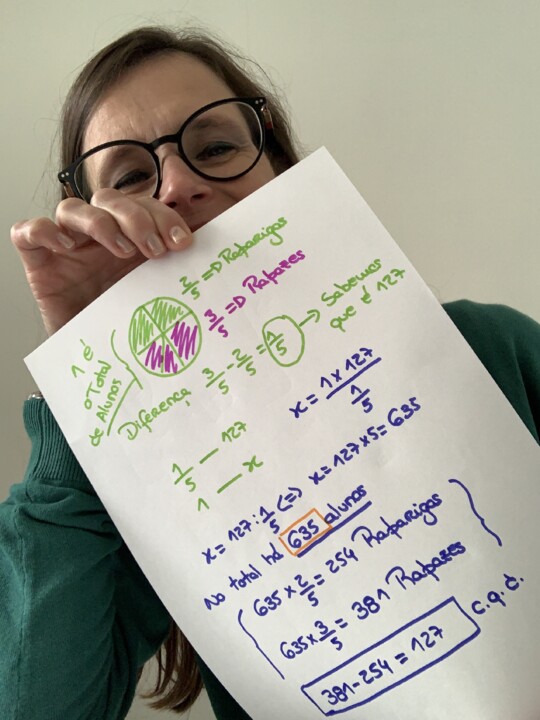 2/5 => Raparigas
3/5 => Rapazes
1 é
o Total
de Alunos
Diferença 3/5 - 2/5 = 1/5 → Sabemos
que é 127
1/5 — 127
1 — x
x = 1 x 127 / 1/5
x = 127 : 1/5 (=) x = 127 x 5 = 635
No total há 635 alunos
635 x 2/5 = 254 Raparigas
635 x 3/5 = 381 Rapazes
381 - 254 = 127 c.q.d.